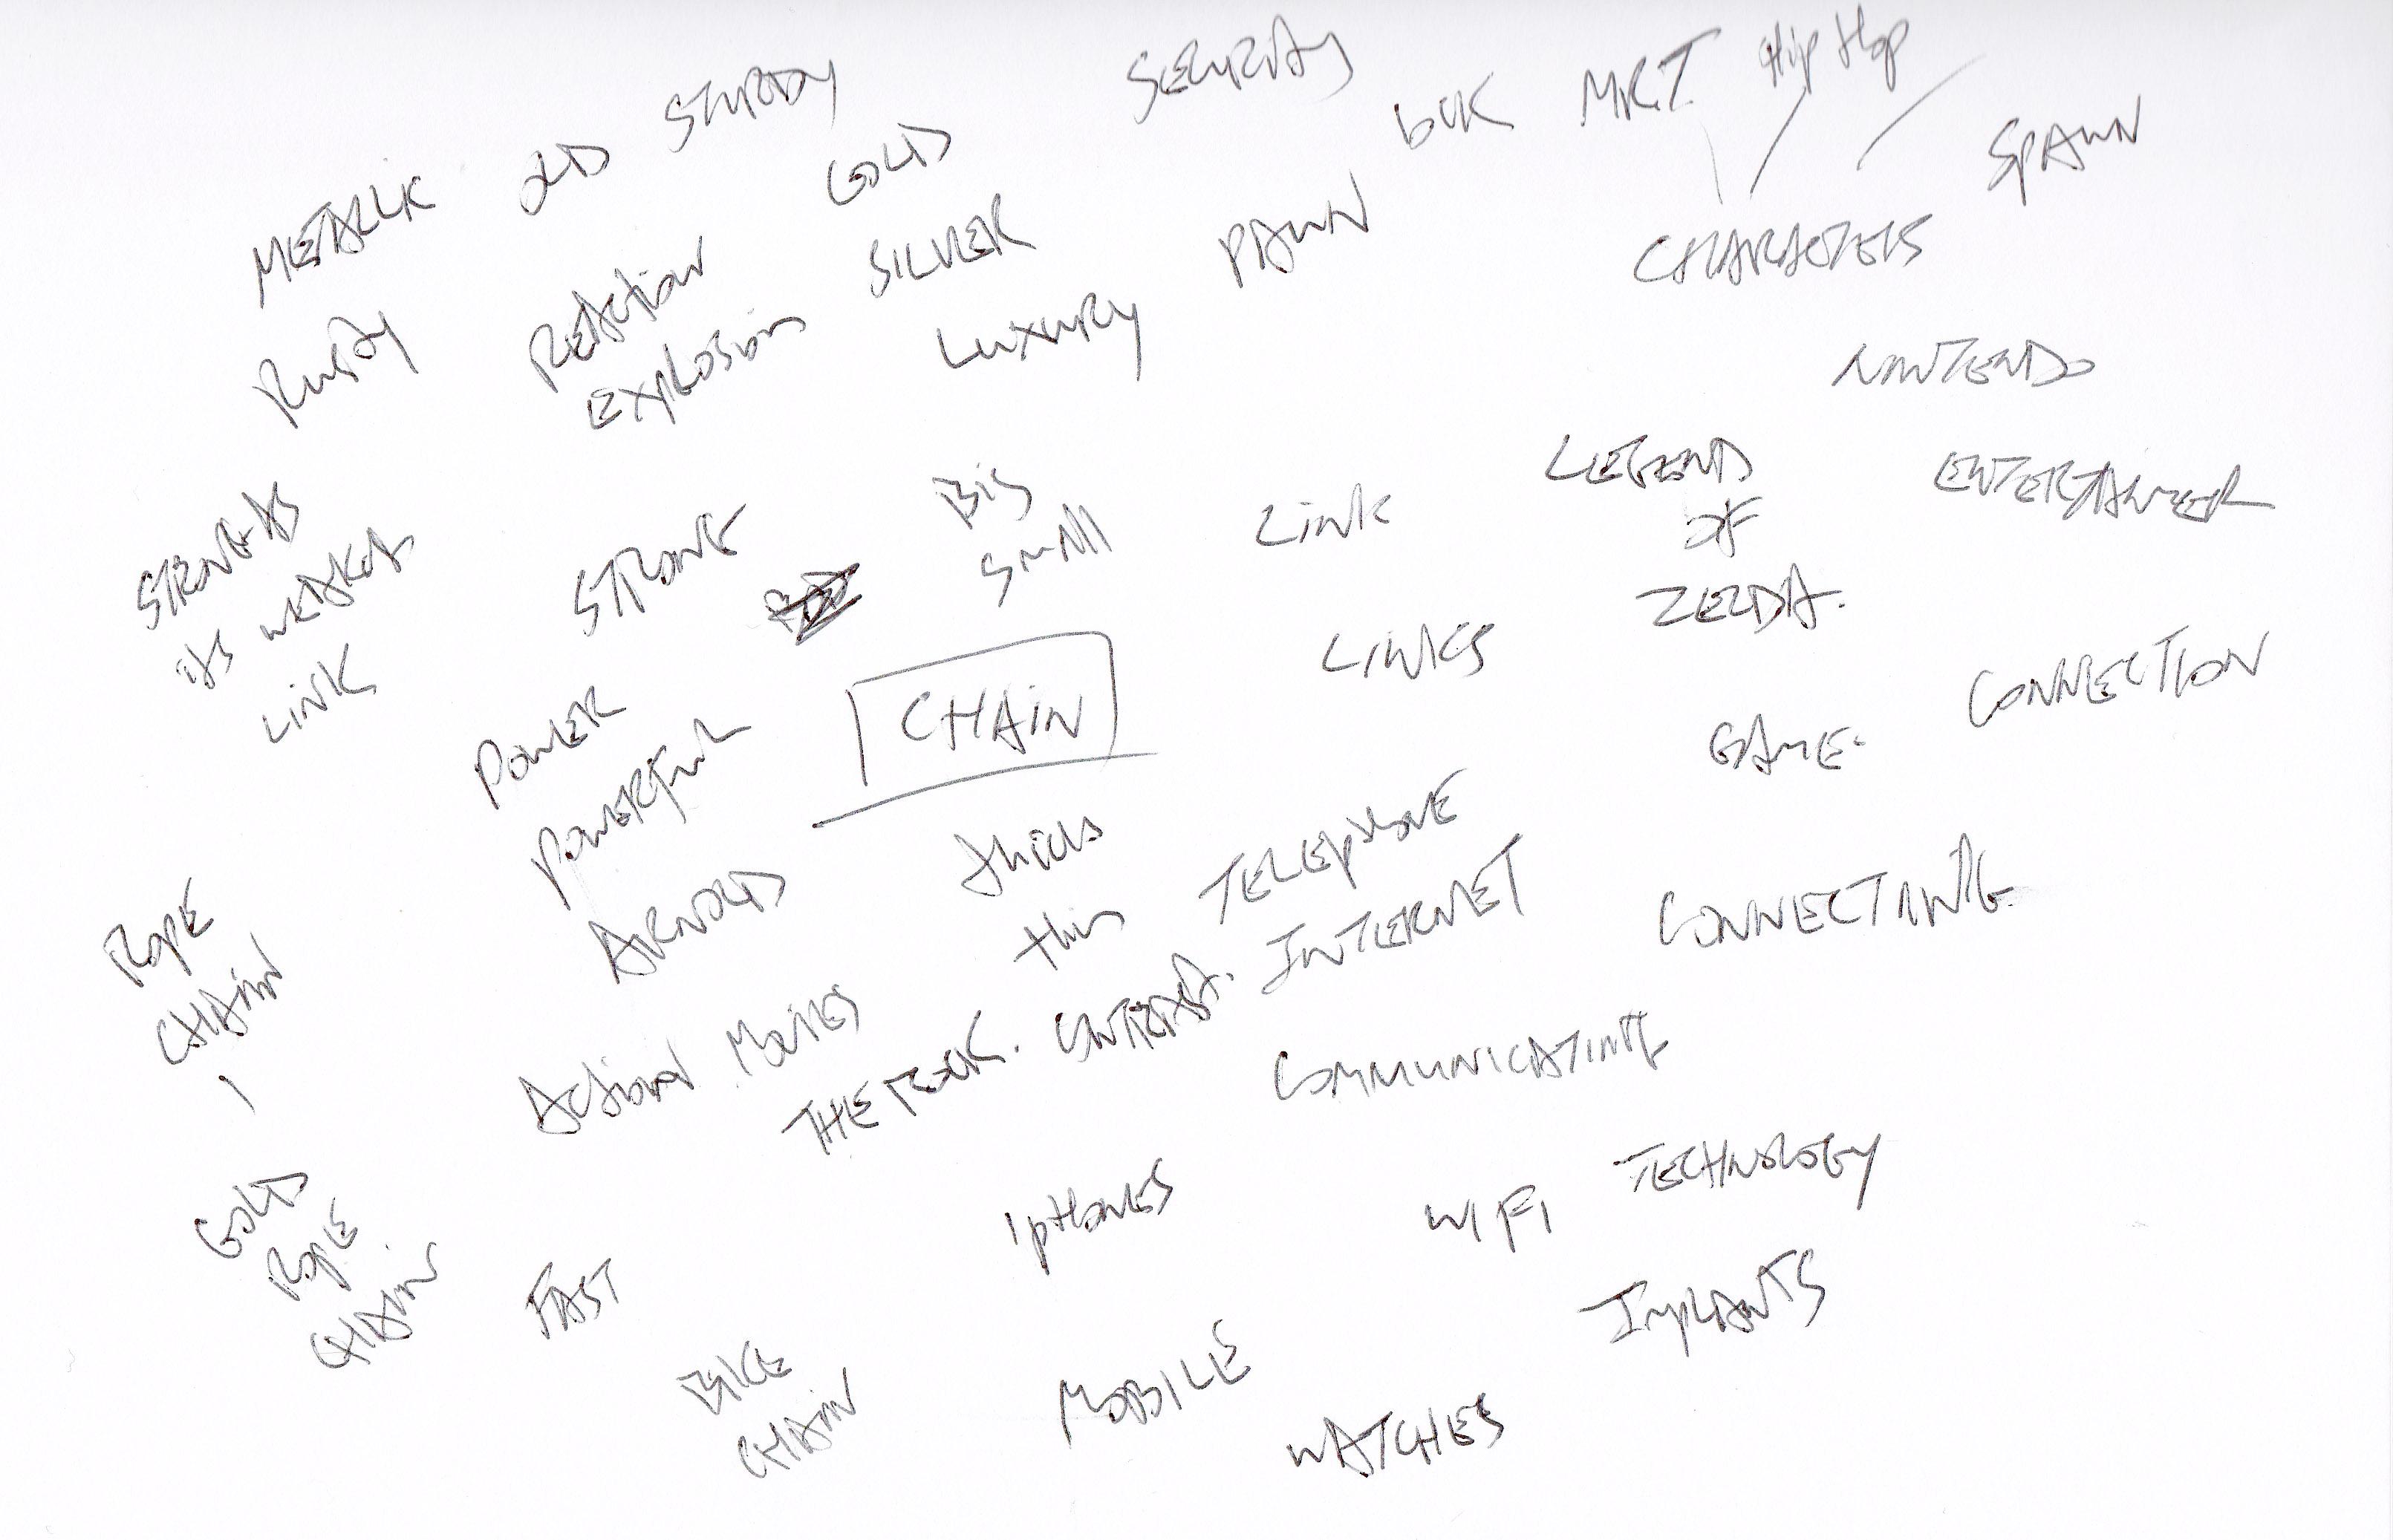 SECURITY
MR.T
Hip Hop
STURDY
OLD
GOLD
LOCK
SPAWN
METALLIC
REACTION
SILVER
PAWN
CHARACTERS
RUSTY
EXPLOSION
LUXURY
NINTENDO
STRONG AS
ITS WEAKEST
LINK
STRONG
BIG
SMALL
LINK
LEGEND
OF
ZELDA.
ENTERTAINER
LINKS
CHAIN
POWER
POWERFUL
GAME.
CONNECTION
ARNOLD
thick
thin
TELEPHONE
INTERNET
CONNECTING
ROPE
CHAIN
ACTION MOVIES
THE ROCK.
COMMUNICATING
GOLD
ROPE
CHAIN
FAST
IPHONES
WIFI
TECHNOLOGY
BIKE
CHAIN
MOBILE
WATCHES
IMPLANTS